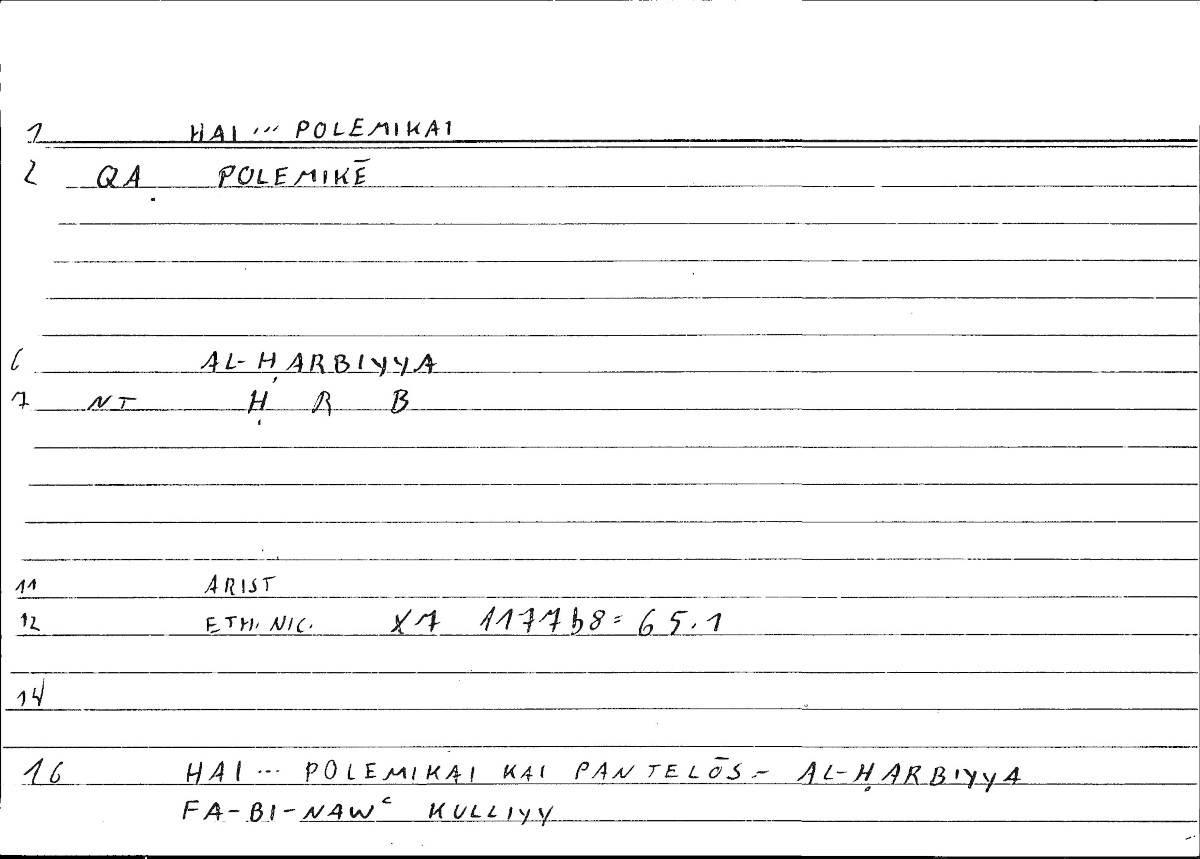 1 HAI ... POLEMIKAI
2 QẠ POLEMIKĒ
6 AL-ḤARBIYYA
7 NT Ḥ R B
11 ARIST
12 ETH. NIC. X7 1177b8 = 65.1
14
16 HAI ... POLEMIKAI KAI PANTELŌS – AL-ḤARBIYYA
FA-BI-NAWᶜ KULLIYY